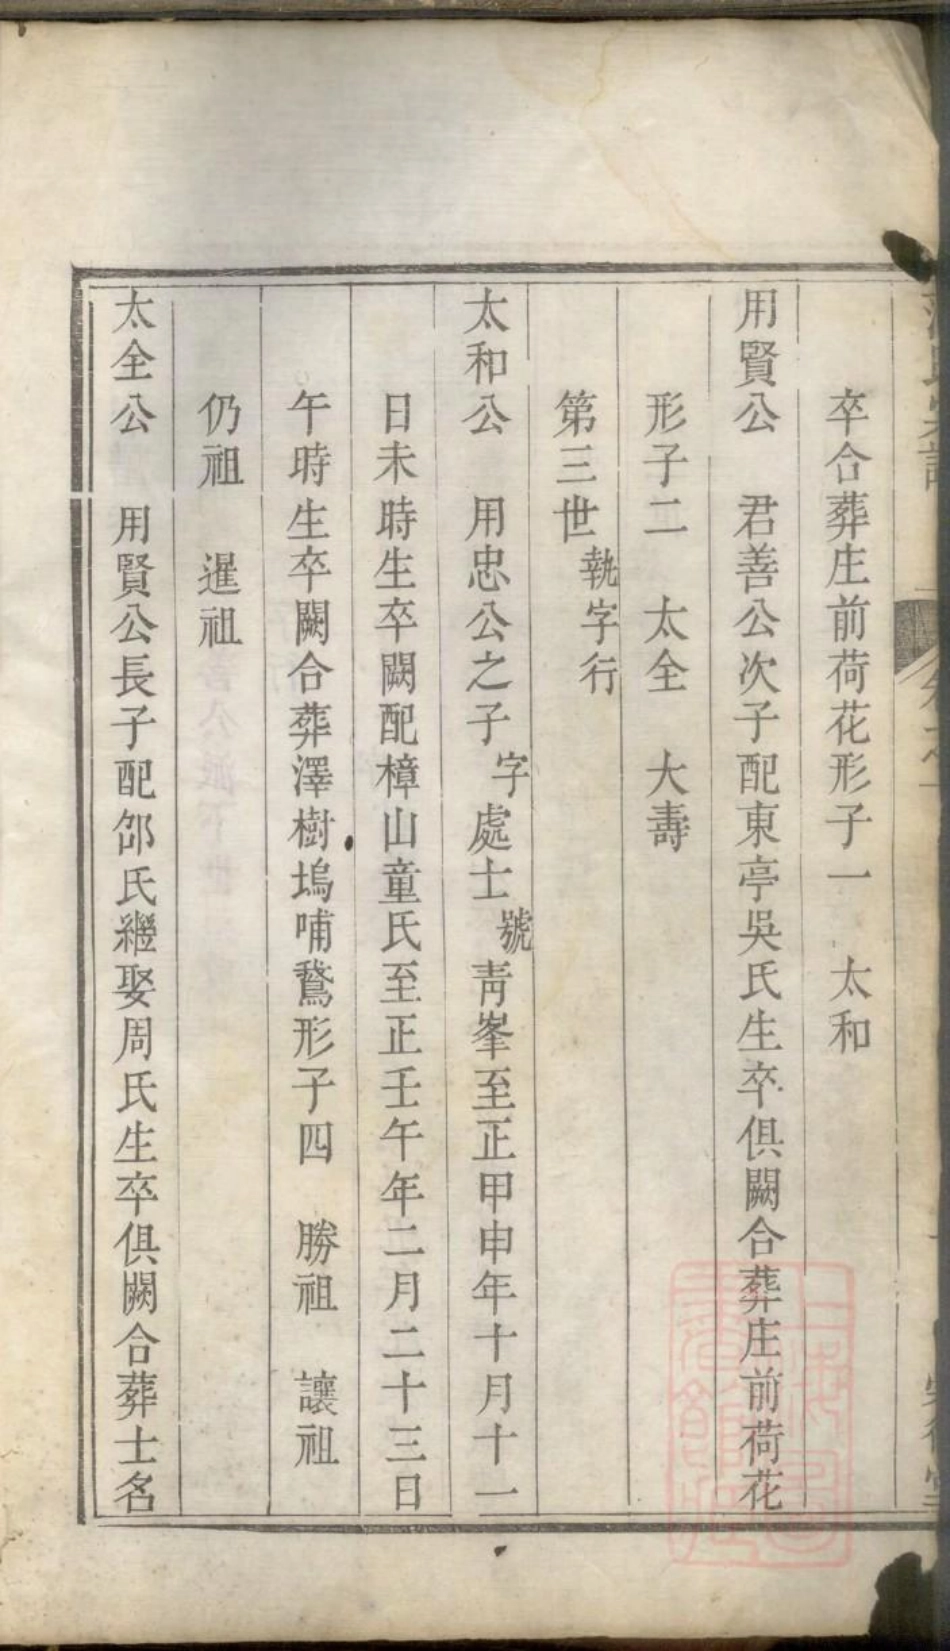 卒合葬庄前荷花形子一　太和
用賢公　君善公次子配東亭吳氏生卒俱闕合葬庄前荷花
形子二　太全　大壽
第三世執字行
太和公　用忠公之子字處士號靑峯至正甲申年十月十一
日未時生卒闕配樟山童氏至正壬午年二月二十三日
午時生卒闕合葬澤樹塢哺鵞形子四　勝祖　讓祖
仍祖　暹祖
太全公　用賢公長子配邰氏繼娶周氏生卒俱闕合葬士名